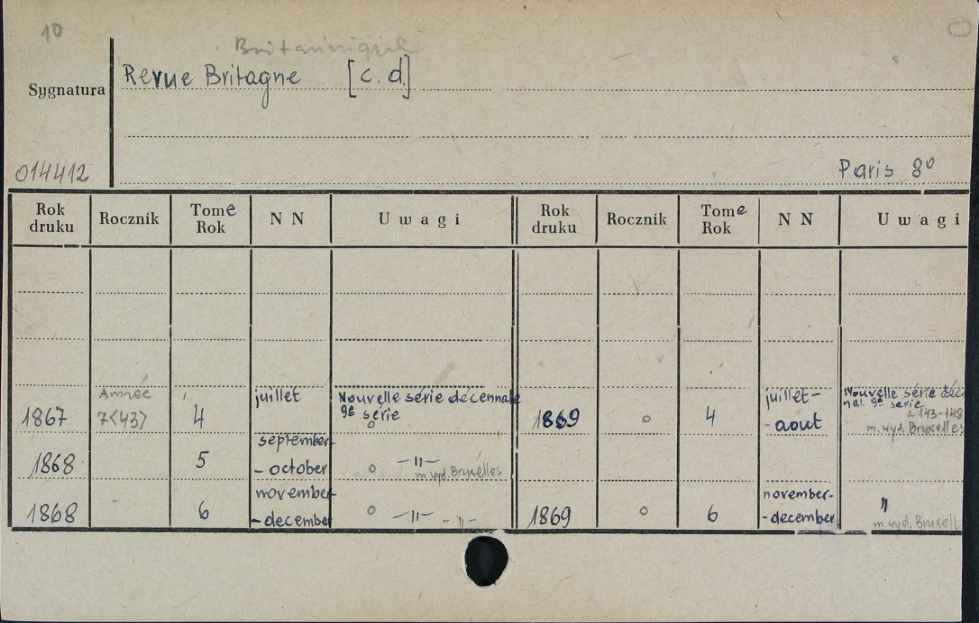 10
Britannique
Sygnatura Revue Britagne [c.d.]
014412 Paris 8º
Rok druku Rocznik Tome Rok N N Uwagi Rok druku Rocznik Tome Rok N N Uwagi
1867 Année 7(43) 4 juillet Nouvelle série décennale 9e série 1869 o 4 juillet- -aout Nouvelle série déc nal. 9e serie 143-148 m. wyd. Bruxelles
1868 5 september- -october o -"- m. wyd. Bruxelles
1868 - 6 november- -december o -"- -"- 1869 o 6 november- -december " m. wyd. Bruxell